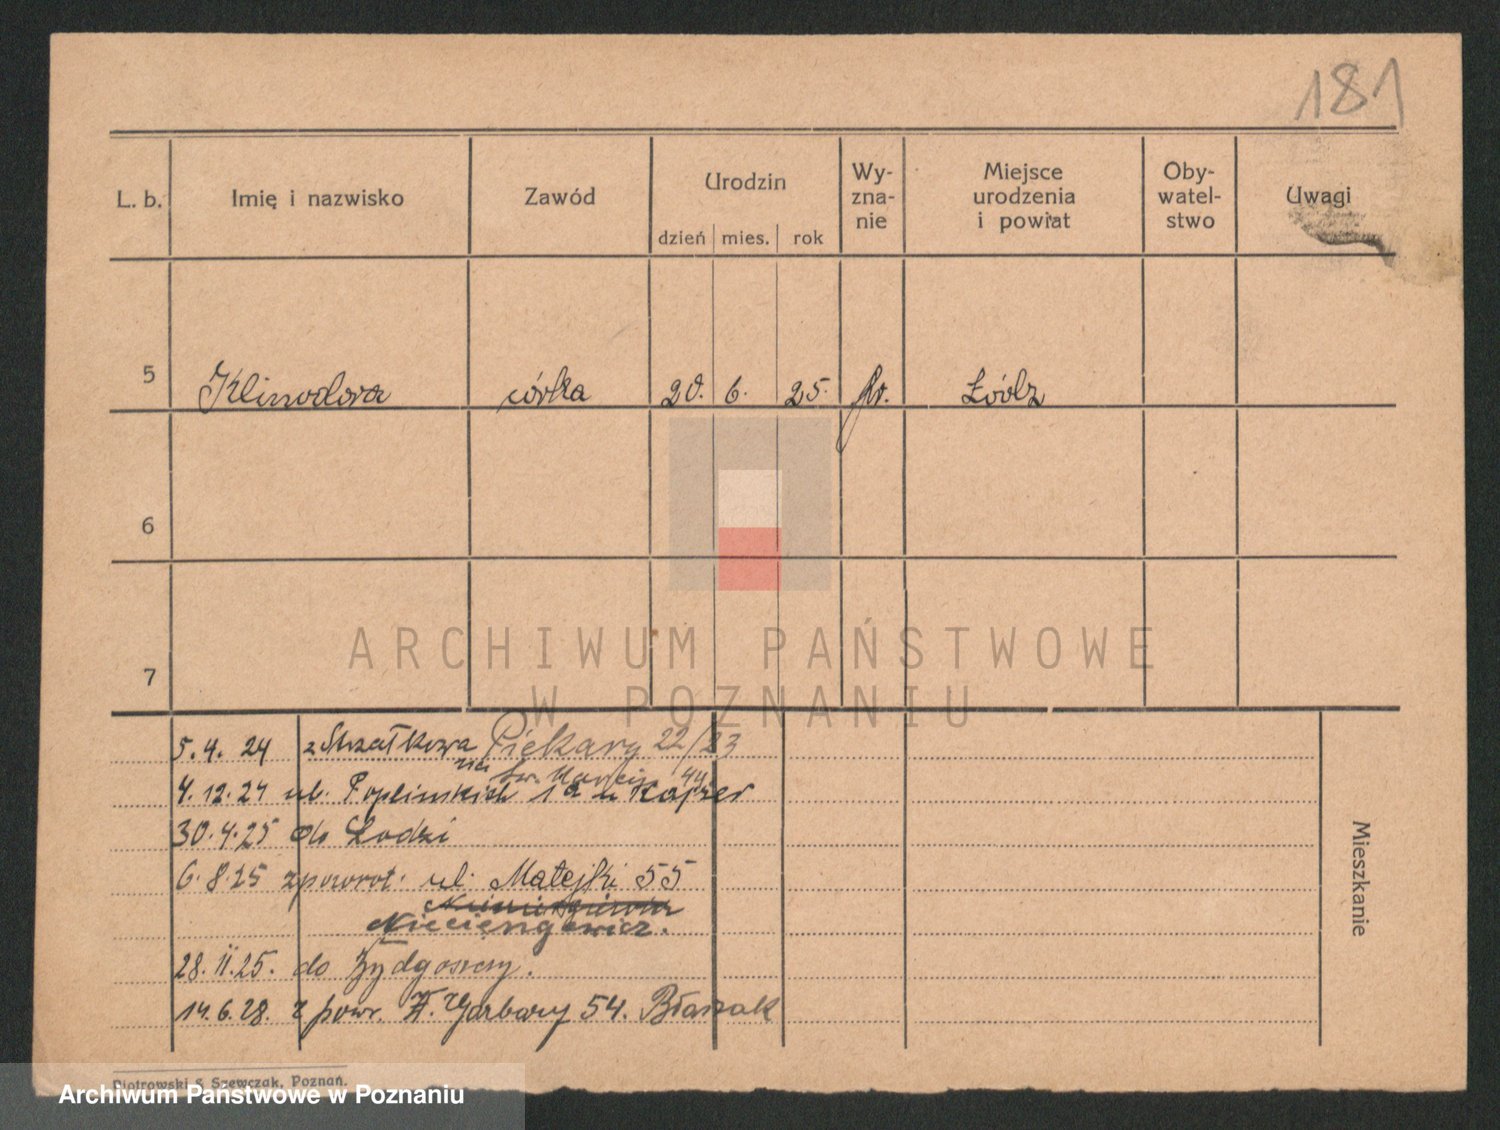 181
L. b. Imię i nazwisko Zawód Urodzin Wy-zna-nie Miejsce urodzenia i powiat Oby-watel-stwo Uwagi
dzień mies. rok
5 Klinodora córka 20. 6. 25. Łódz
6
7
ARCHIWUM PAŃSTWOWE
W POZNANIU
5.4. 24 z Strzałkowa Piekary 22/23
na św. Marcin 44
4.12.24 ul. Poplinskich 1a u Kajzer
30.4.25 do Łodzi
6.8.25 zpowrot. ul. Matejki 55
28.11.25. do Bydgoszczy.
14.6.28. z powr. W. Garbary 54. Błaszak
Mieszkanie
Piotrowski & Szewczak, Poznań.
Archiwum Państwowe w Poznaniu